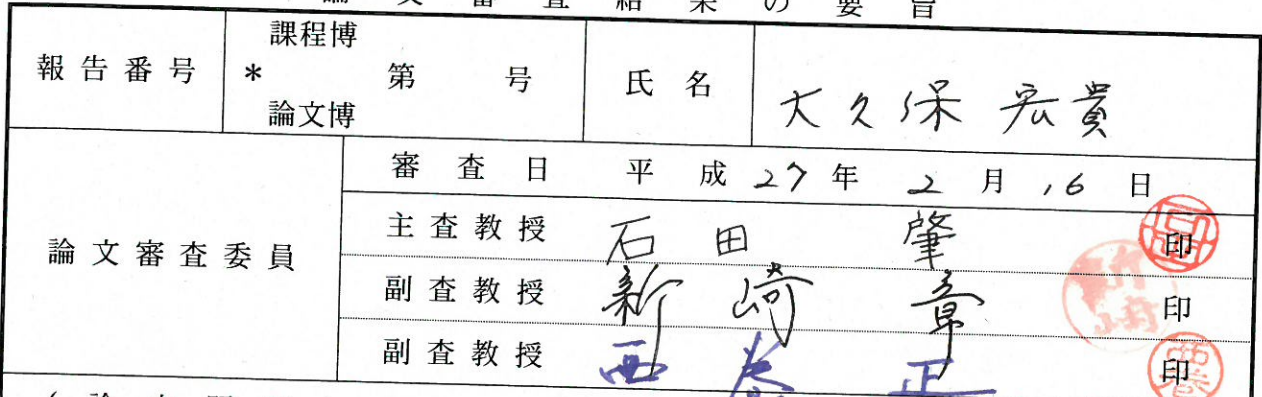 論文審査結果の要旨
報告番号
課程博
* 第 号
論文博
氏名
大久保 宏貴
論文審査委員
審査日 平成27年2月16日
主査教授 石田 肇 印
副査教授 新崎 章 印
副査教授 西巻 正 印
(論文題